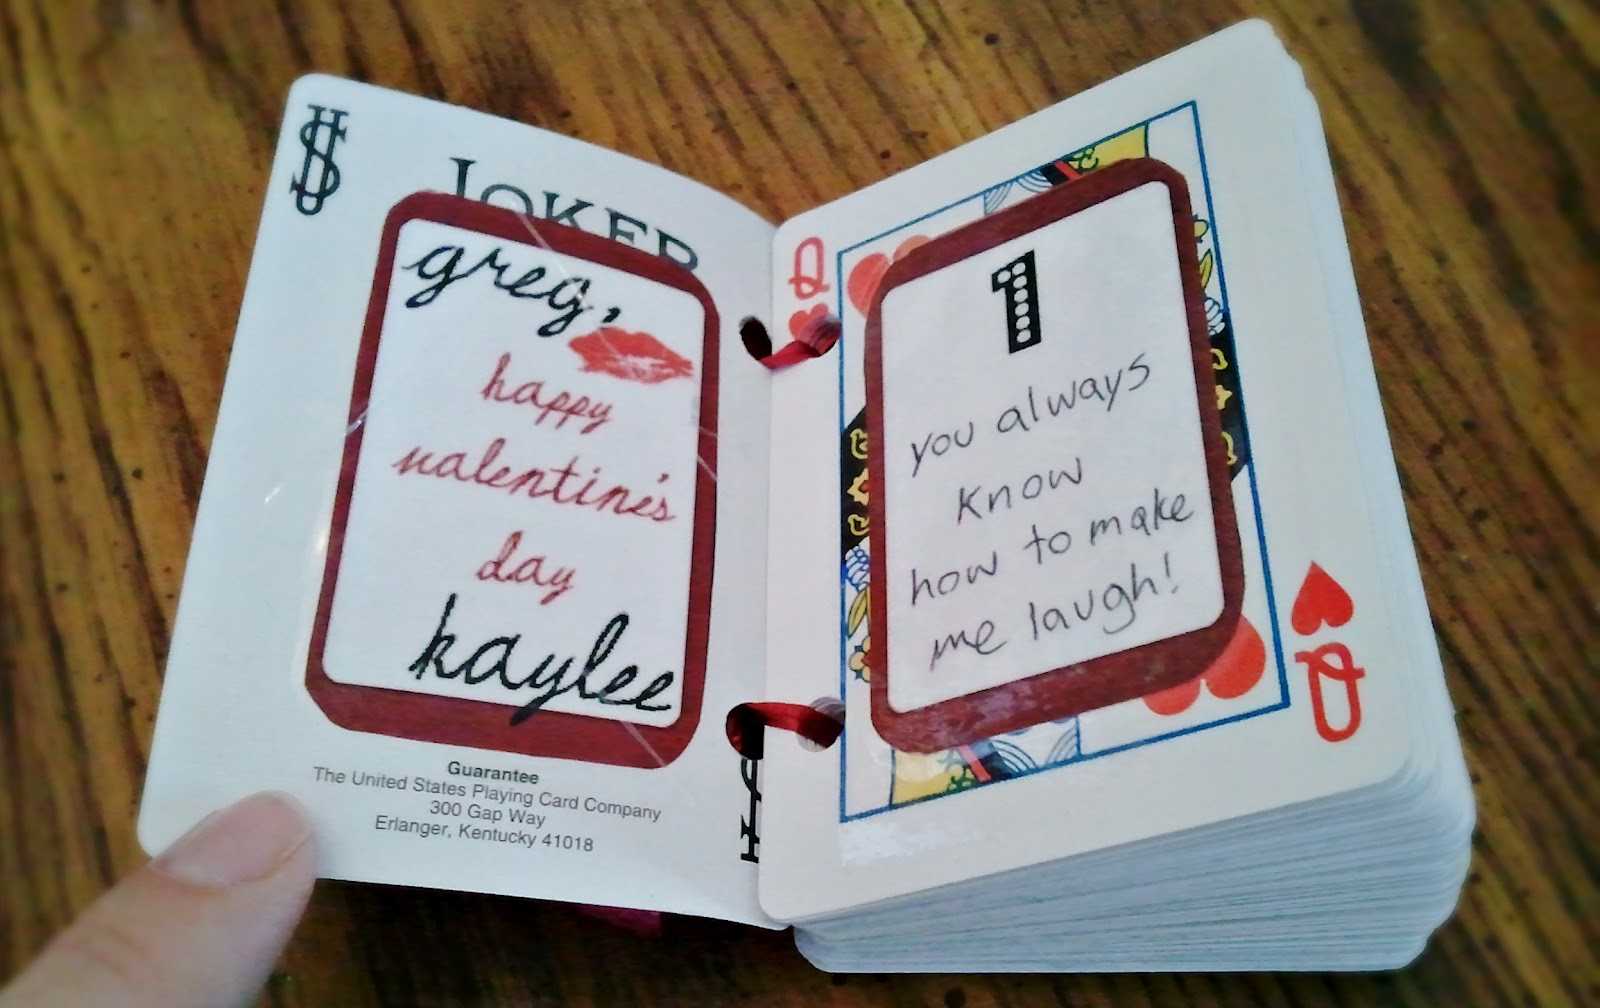 JOKER
greg,
happy
valentine's
day
kaylee
Guarantee
The United States Playing Card Company
300 Gap Way
Erlanger, Kentucky 41018
Q
1
you always
know
how to make
me laugh!
Q